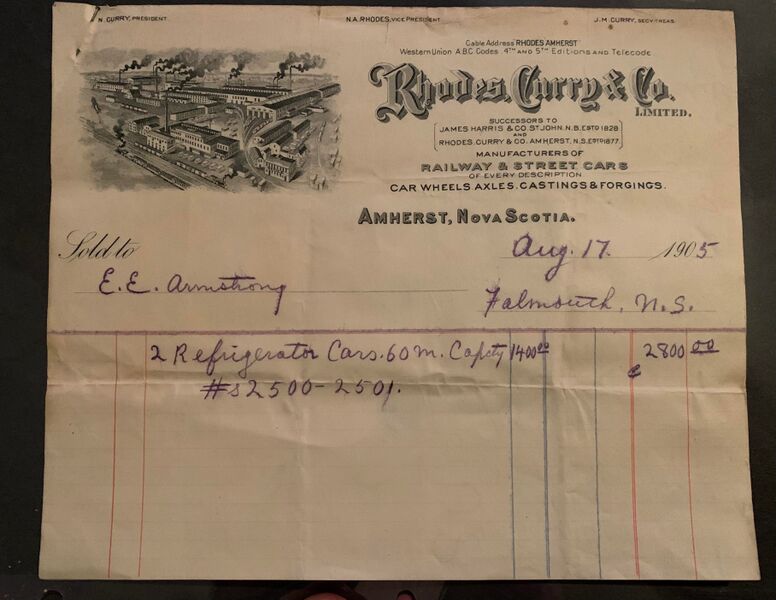 N. CURRY, PRESIDENT.
N.A. RHODES, VICE PRESIDENT
J.M. CURRY, SECY-TREAS.
Cable Address RHODES AMHERST
Western Union A.B.C Codes. 4TH AND 5TH Editions and Telecode
Rhodes, Curry & Co.
LIMITED.
SUCCESSORS TO
JAMES HARRIS & CO. ST JOHN, N.B. ESTD 1828
AND
RHODES, CURRY & CO. AMHERST, N.S. ESTD 1877.
MANUFACTURERS OF
RAILWAY & STREET CARS
OF EVERY DESCRIPTION
CAR WHEELS, AXLES, CASTINGS & FORGINGS.
AMHERST, NOVA SCOTIA.
Sold to
Aug. 17. 1905
E. E. Armstrong
Falmouth, N.S.
2 Refrigerator Cars. 60 m. Capcty 1400 00 2800 00
#s 2500-2501.